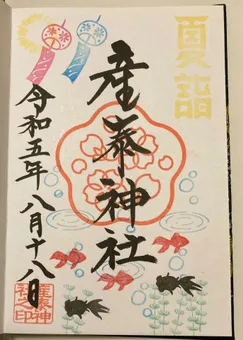 夏詣
産泰神社
令和五年八月十八日
産泰神
社之印